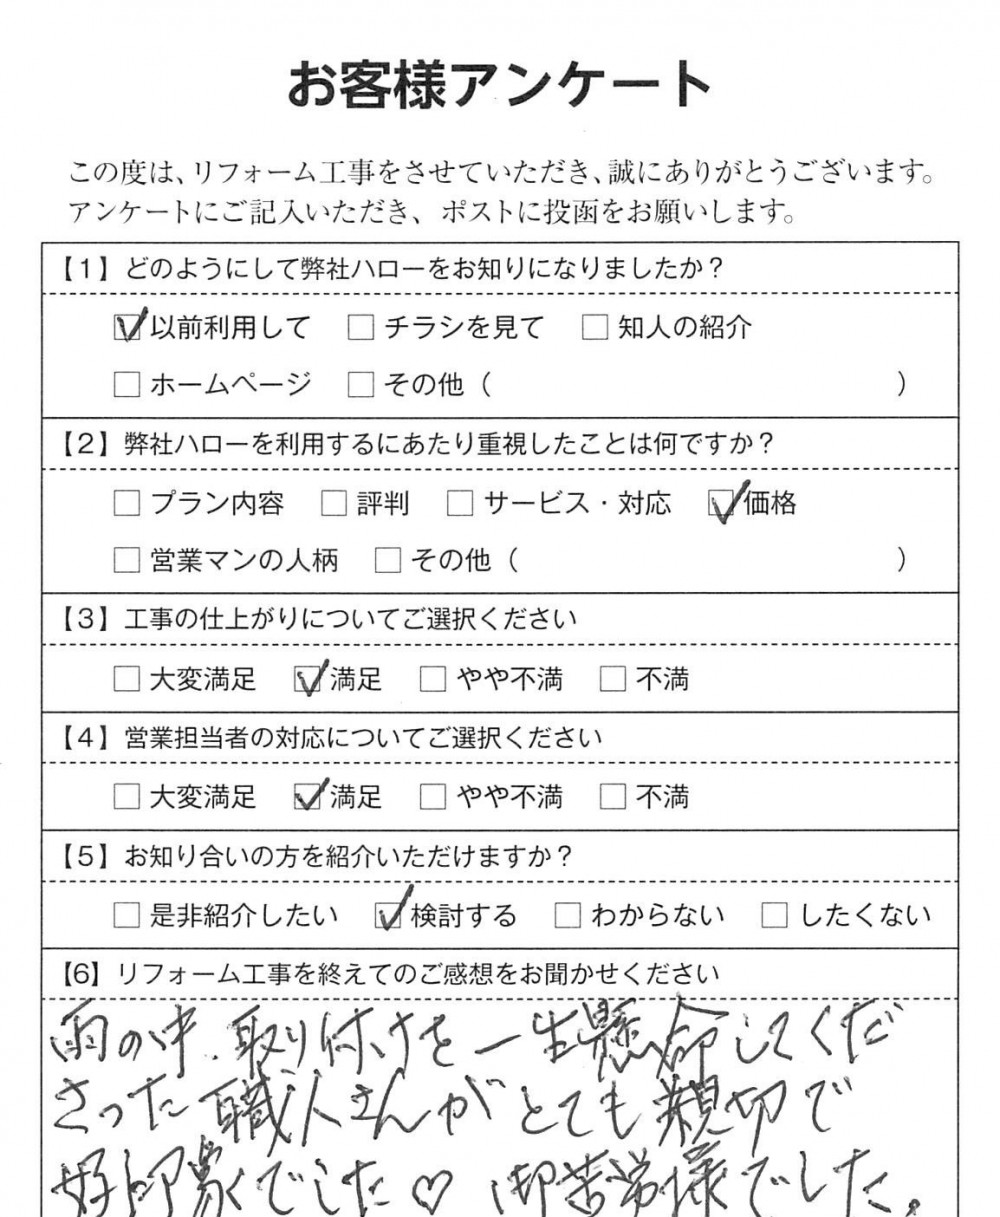 お客様アンケート
この度は、リフォーム工事をさせていただき、誠にありがとうございます。
アンケートにご記入いただき、ポストに投函をお願いします。
【1】どのようにして弊社ハローをお知りになりましたか？
☑以前利用して □チラシを見て □知人の紹介
□ホームページ □その他（ ）
【2】弊社ハローを利用するにあたり重視したことは何ですか？
□プラン内容 □評判 □サービス・対応 ☑価格
□営業マンの人柄 □その他（ ）
【3】工事の仕上がりについてご選択ください
□大変満足 ☑満足 □やや不満 □不満
【4】営業担当者の対応についてご選択ください
□大変満足 ☑満足 □やや不満 □不満
【5】お知り合いの方を紹介いただけますか？
□是非紹介したい ☑検討する □わからない □したくない
【6】リフォーム工事を終えてのご感想をお聞かせください
雨の中、取り付けを一生懸命してくだ
さった職人さんがとても親切で
好印象でした♡ 御苦労様でした。